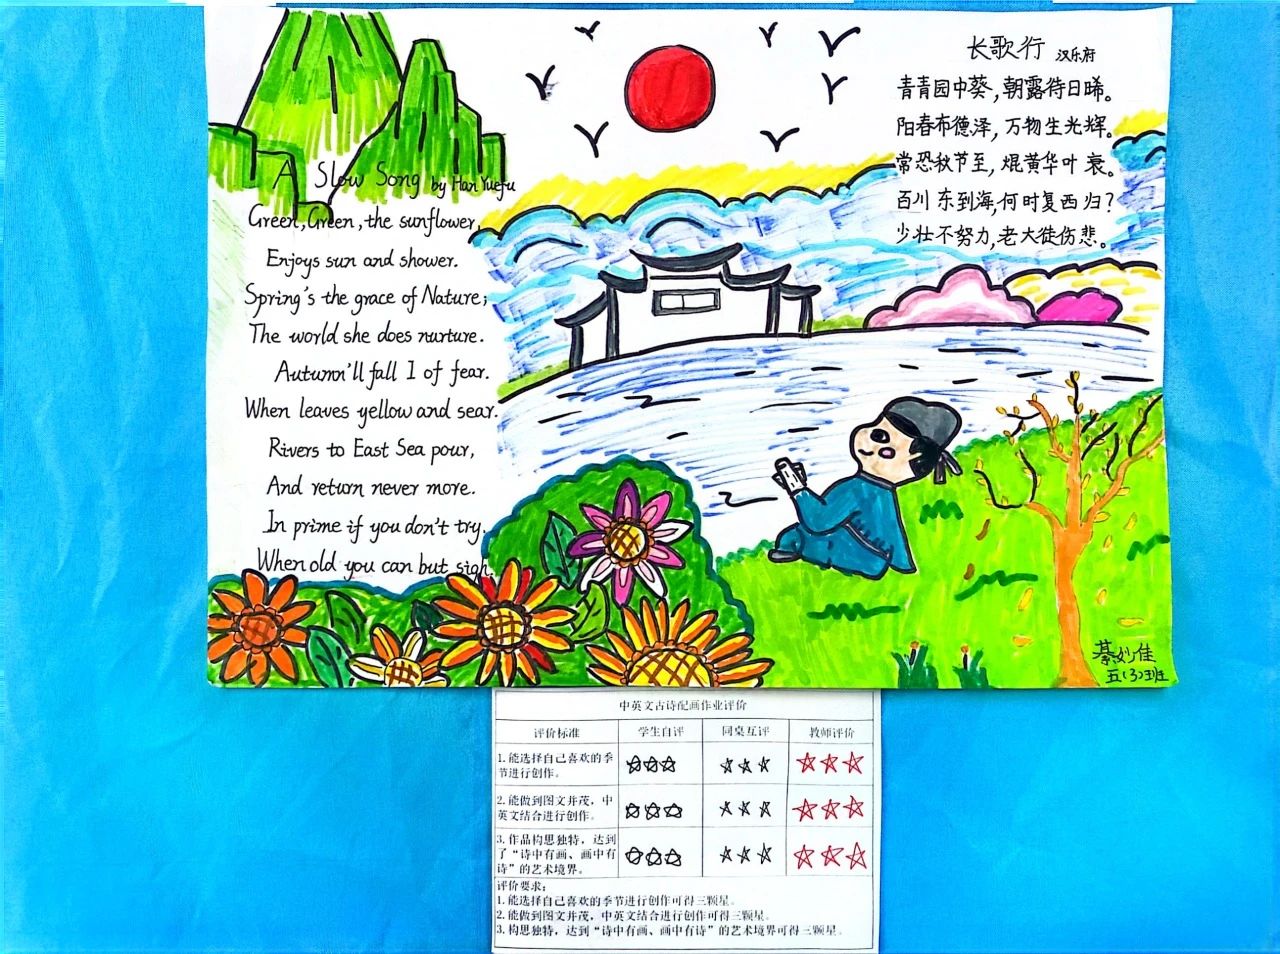 A Slow Song by Han Yuefu
Green, Green, the sunflower,
Enjoys sun and shower.
Spring's the grace of Nature;
The world she does nurture.
Autumn'll fall I of fear.
When leaves yellow and sear.
Rivers to East Sea pour,
And return never more.
In prime if you don't try.
When old you can but sigh.
长歌行 汉乐府
青青园中葵,朝露待日晞。
阳春布德泽,万物生光辉。
常恐秋节至,焜黄华叶衰。
百川东到海,何时复西归?
少壮不努力,老大徒伤悲。
綦妙佳
五(3)班
中英文古诗配画作业评价
评价标准 学生自评 同桌互评 教师评价
1.能选择自己喜欢的季
节进行创作。
2.能做到图文并茂,中
英文结合进行创作。
3.作品构思独特,达到
了“诗中有画、画中有
诗”的艺术境界。
评价要求:
1.能选择自己喜欢的季节进行创作可得三颗星。
2.能做到图文并茂,中英文结合进行创作可得三颗星。
3.构思独特,达到“诗中有画、画中有诗”的艺术境界可得三颗星。